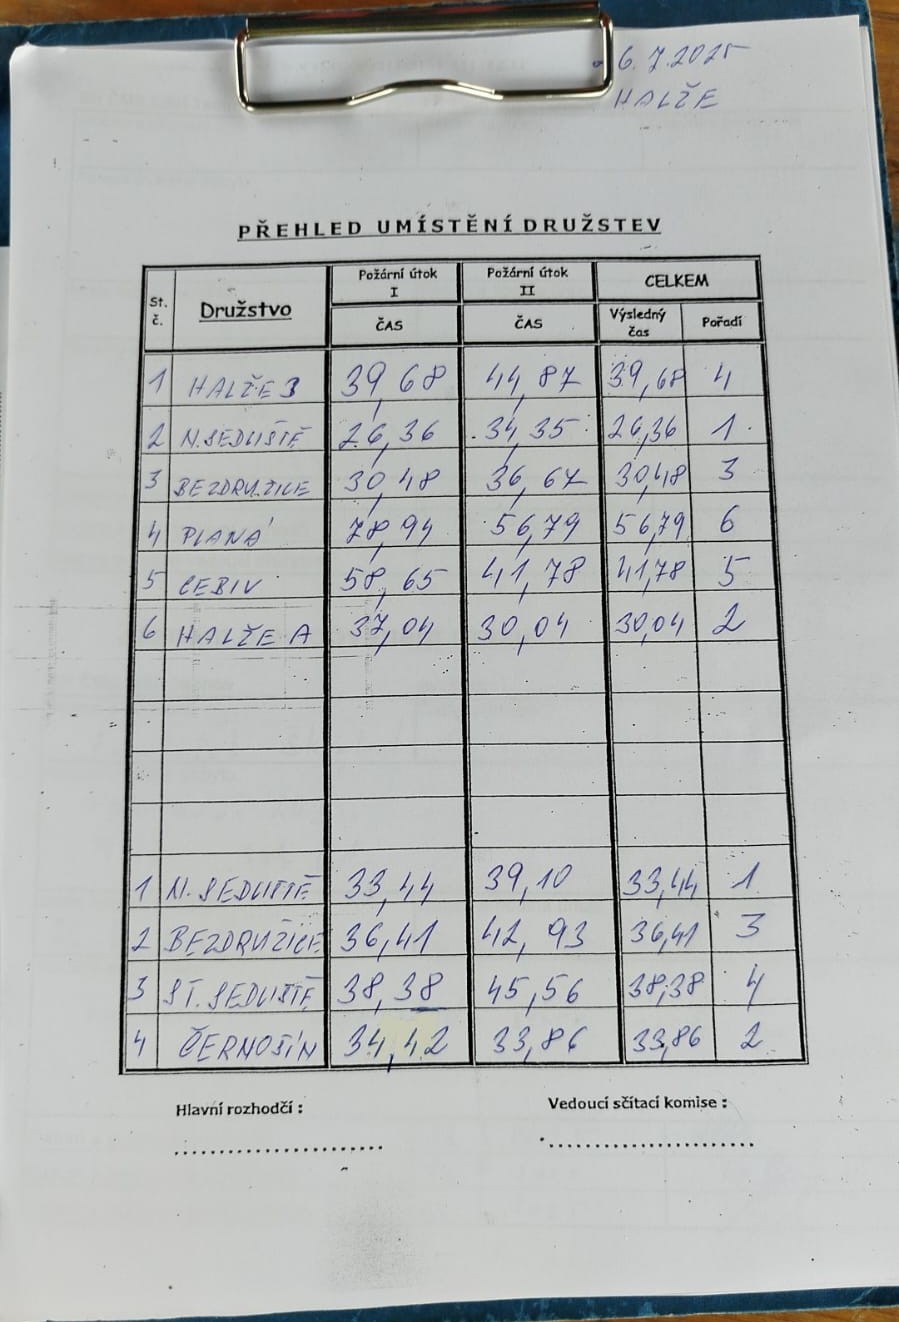 26.7.2025
HALŽE
PŘEHLED UMÍSTĚNÍ DRUŽSTEV
St. č. Družstvo Požární útok I Požární útok II CELKEM
ČAS ČAS Výsledný čas Pořadí
1 HALŽE B 39,68 44,87 39,68 4
2 N.SEDLIŠTĚ 26,36 34,35 26,36 1
3 BEZDRUŽICE 30,48 36,67 30,48 3
4 PLANÁ 78,94 56,79 56,79 6
5 CEBIV 58,65 41,78 41,78 5
6 HALŽE A 37,04 30,04 30,04 2
1 N. SEDLIŠTĚ 33,44 39,10 33,44 1
2 BEZDRUŽICE 36,41 42,93 36,41 3
3 ST. SEDLIŠTĚ 38,38 45,56 38,38 4
4 ČERNOŠÍN 34,42 33,86 33,86 2
Hlavní rozhodčí : Vedoucí sčítací komise :